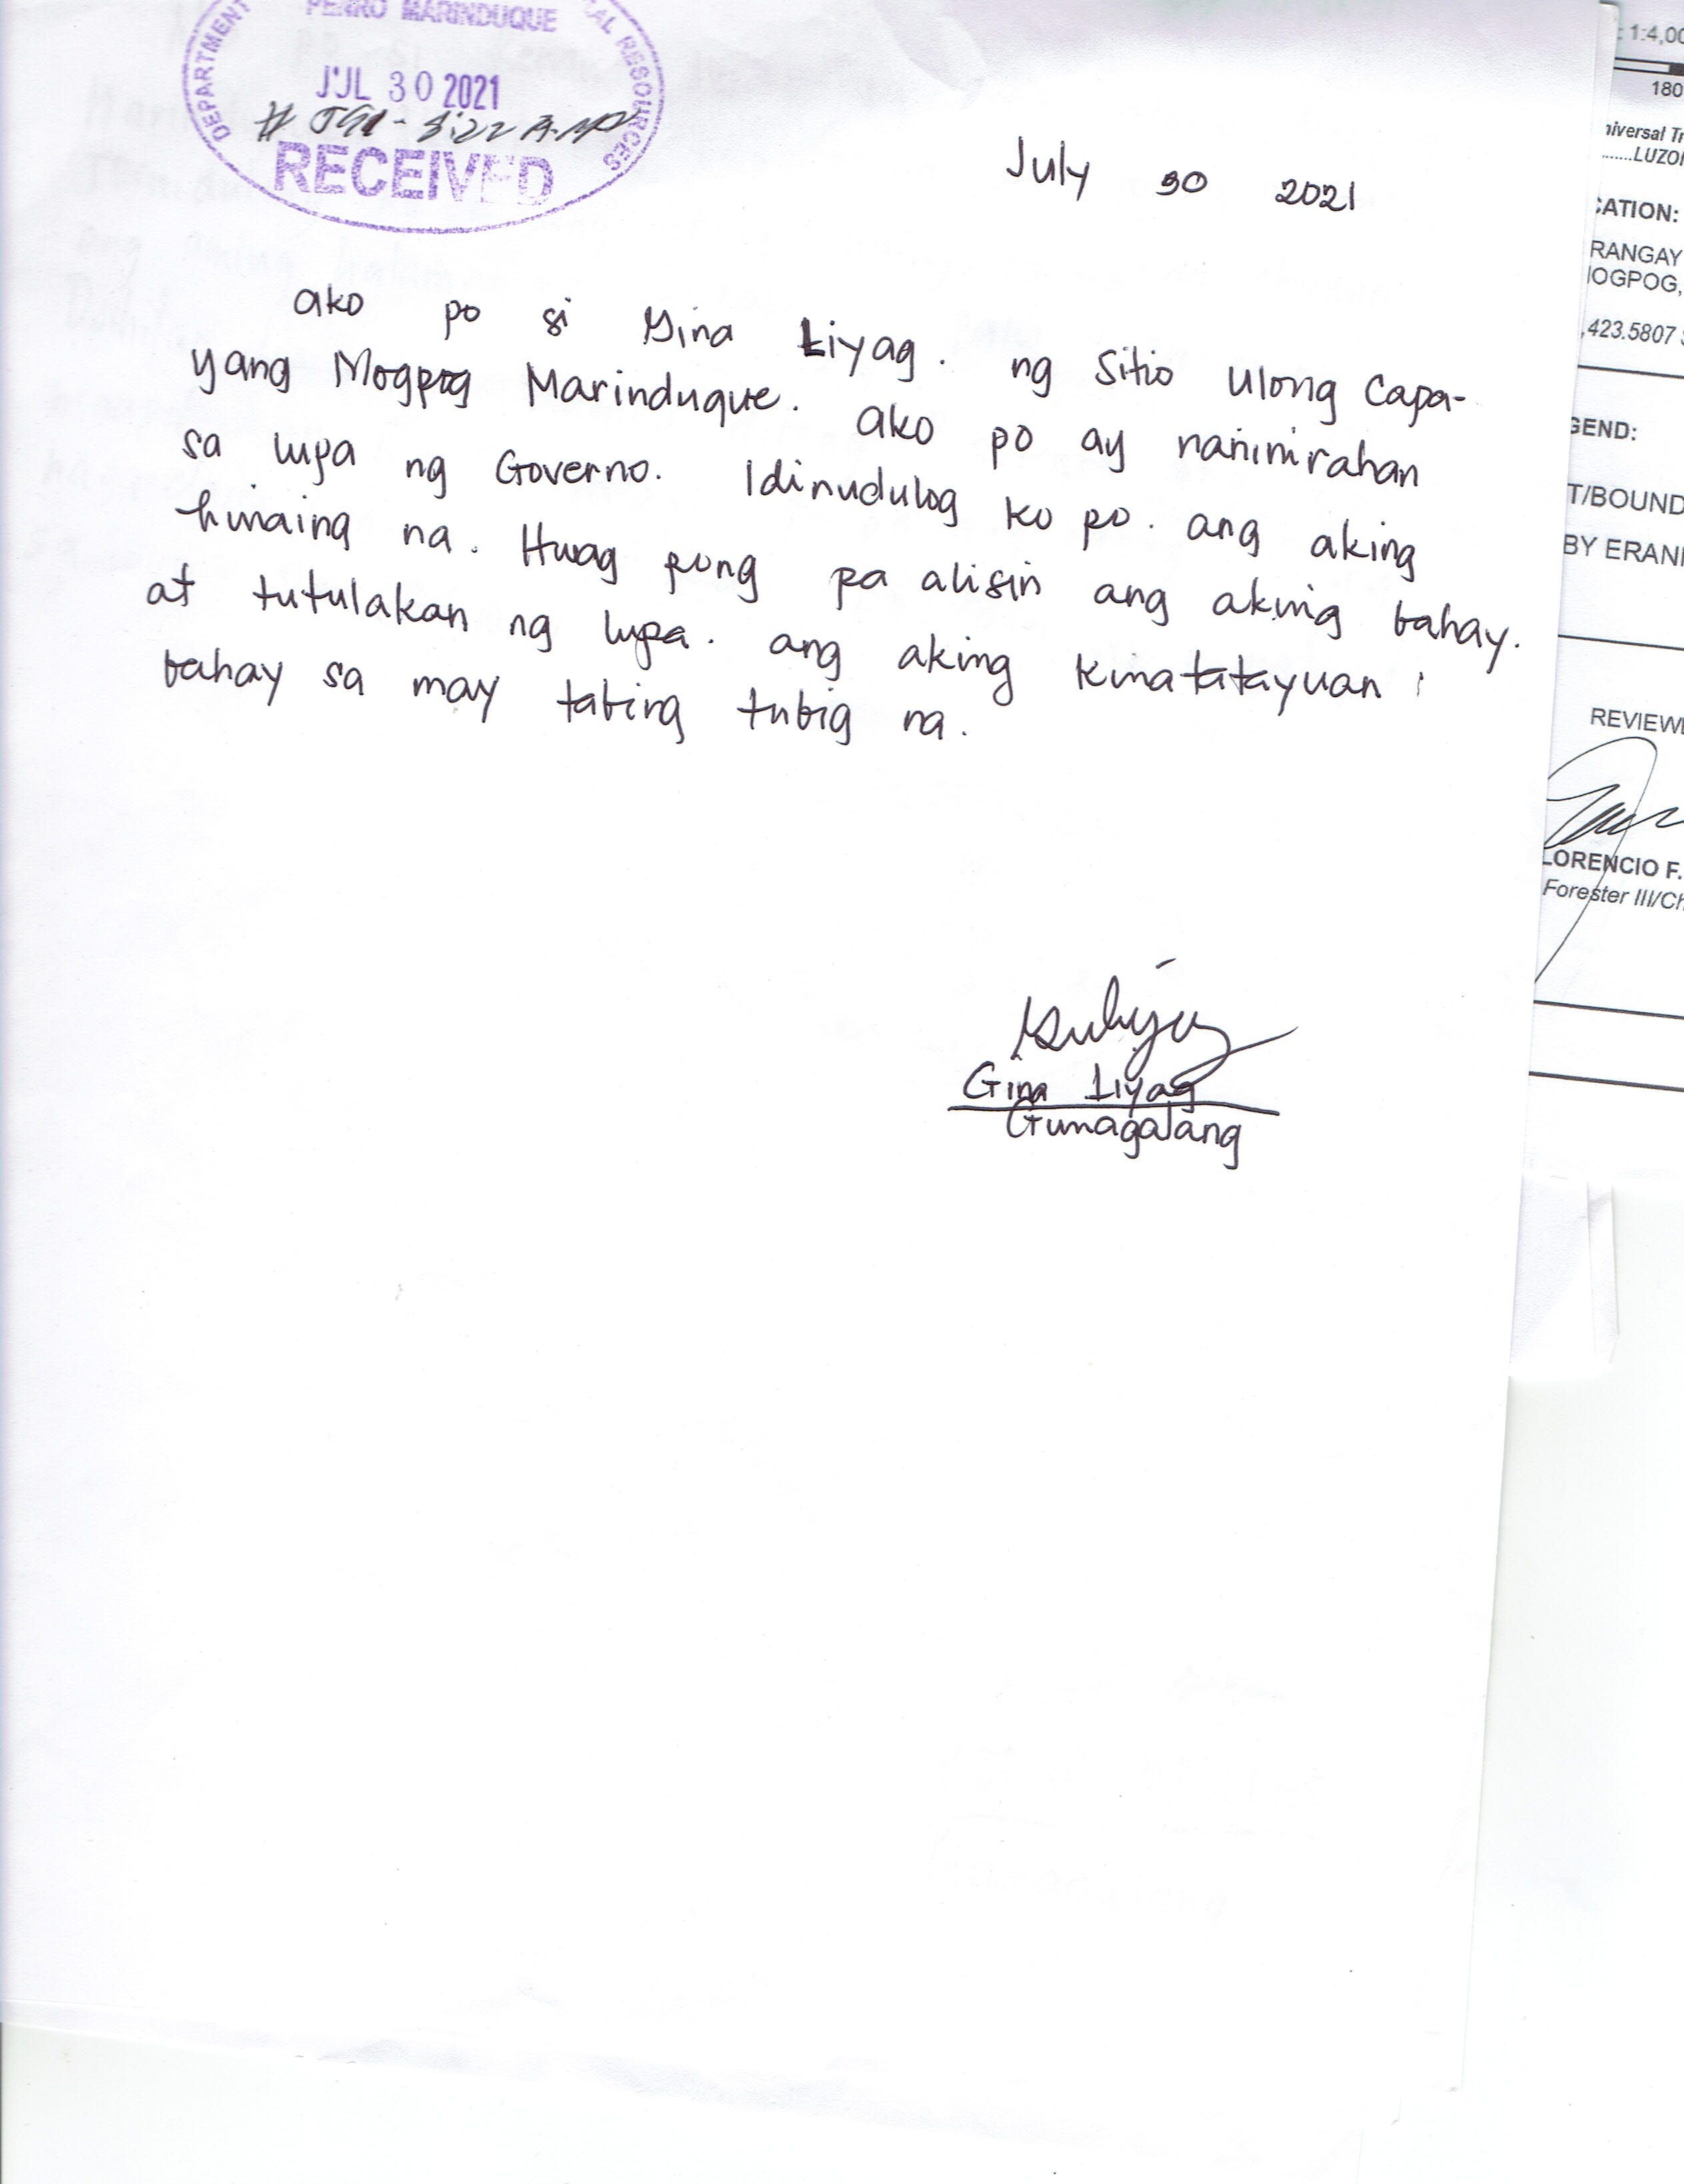 PENRO MARINDUQUE
DEPARTMENT
RESOURCES
JUL 30 2021
RECEIVED
July 30 2021
ako po si Gina Liyag. ng Sitio Ulong Capa-
yang Mogpog Marinduque. ako po ay naninirahan
sa lupa ng Governo. Idinudulog ko po. ang aking
hinaing na. Huag pong pa alisin ang aking bahay.
at tutulakan ng lupa. ang aking kinatatayuan
bahay sa may tabing tubig na.
Gina Liyag
Gumagalang
: 1:4,00
180
niversal Tr
.......LUZO
CATION:
RANGAY
OGPOG,
,423.5807
GEND:
T/BOUND
BY ERAN
REVIEW
LORENCIO F.
Forester III/Ch